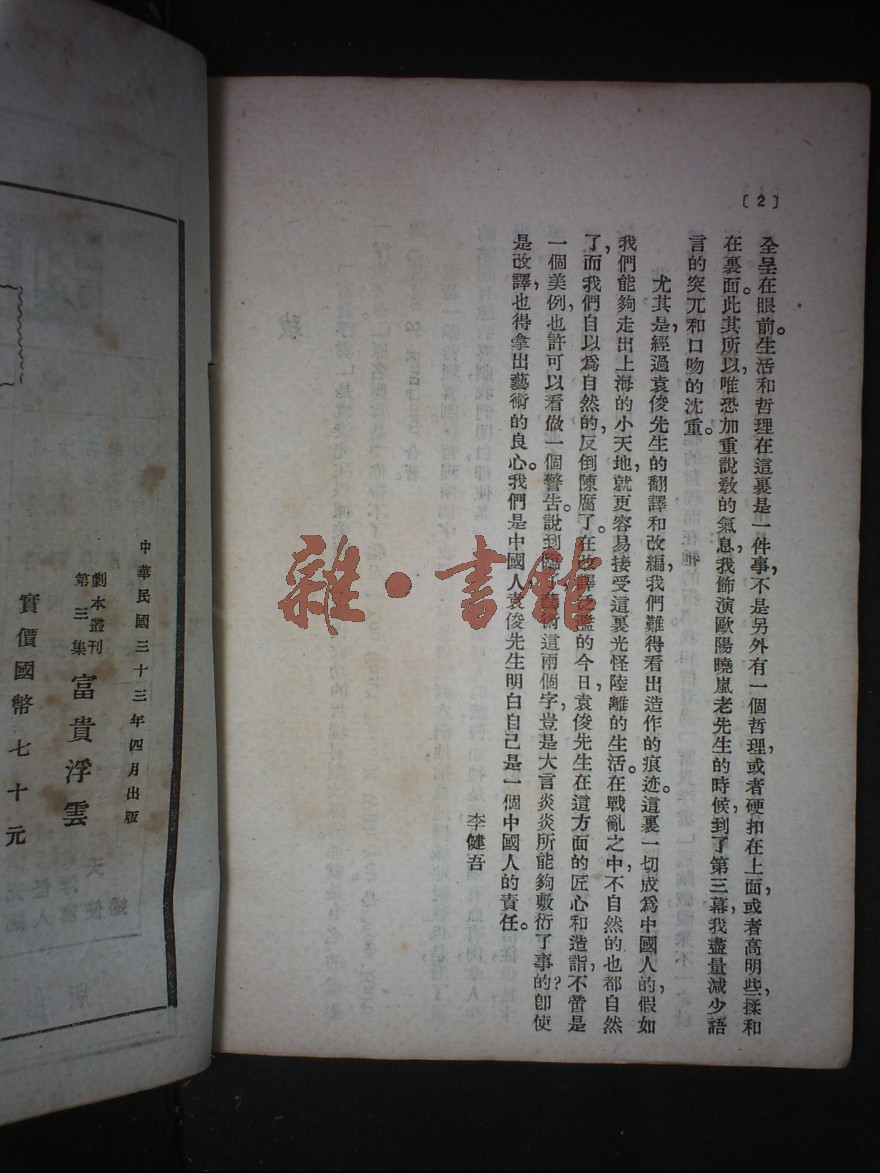 〔2〕
全呈在眼前。生活和哲理在這裏是一件事，不是另外有一個哲理，或者硬扣在上面，或者高明些，揉和
在裏面。此其所以，唯恐加重說敎的氣息，我飾演歐陽曉嵐老先生的時候，到了第三幕，我盡量減少語
言的突兀和口吻的沈重。
尤其是，經過袁俊先生的翻譯和改編，我們難得看出造作的痕迹。這裏一切成爲中國人的，假如
我們能夠走出上海的小天地，就更容易接受這裏光怪陸離的生活。在戰亂之中，不自然的也都自然
了，而我們自以爲自然的，反倒陳腐了。在改譯泛濫的今日，袁俊先生在這方面的匠心和造詣，不啻是
一個美例，也許可以看做一個警告。說到臨了，藝術這兩個字，豈是大言炎炎所能夠敷衍了事的？卽使
是改譯，也得拿出藝術的良心。我們是中國人，袁俊先生明白自己是一個中國人的責任。
李健吾
中華民國三十三年四月出版
劇本叢刊
第三集
富貴浮雲
實價國幣七十元
雜·書館